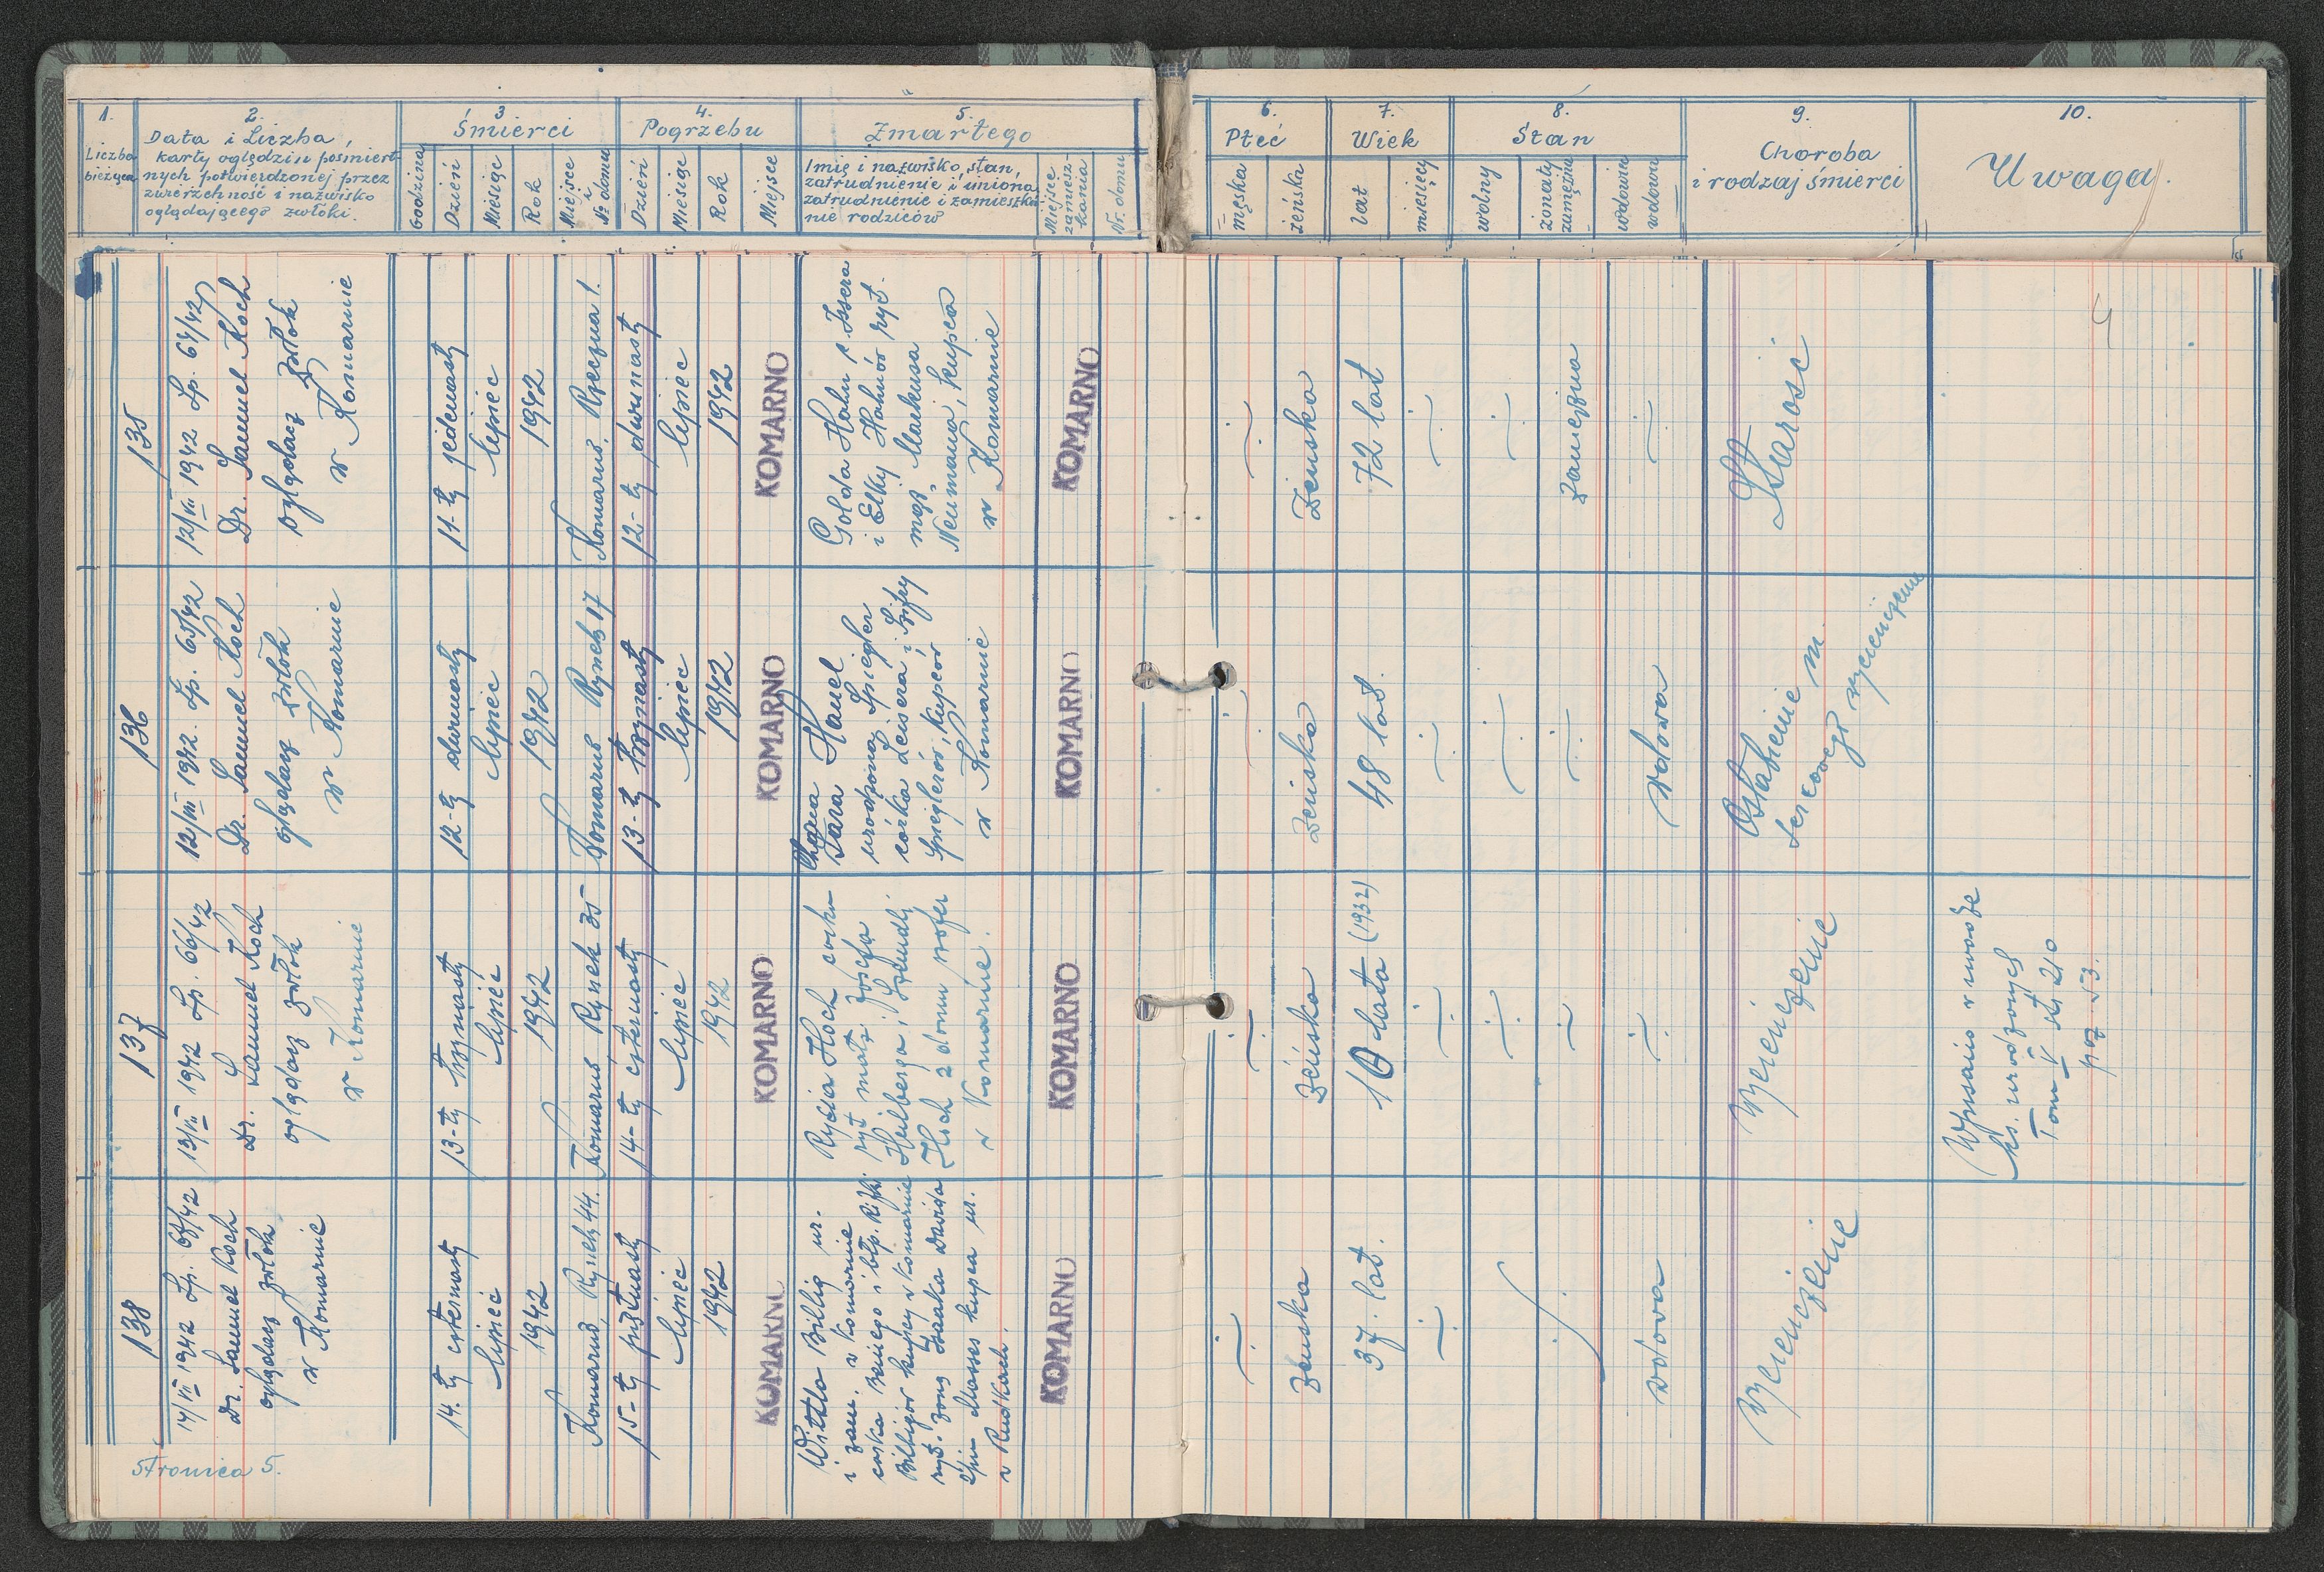 1.
Liczba
bieżąca
2.
Data i Liczba,
karty oględzin pośmiert-
nych potwierdzonej przez
zwierzchność i nazwisko
oglądającego zwłoki.
3
Śmierci
Godzina
Dzień
Miesiąc
Rok
Miejsce
i
Nr domu
4.
Pogrzebu
Dzień
Miesiąc
Rok
Miejsce
5.
Zmarłego
Imię i nazwisko, stan,
zatrudnienie i imiona,
zatrudnienie i zamieszka-
nie rodziców
Miejsce
zamiesz-
kania
Nr. domu
6.
Płeć
męska
żeńska
7.
Wiek
lat
miesięcy
8.
Stan
wolny
żonaty
zamężna
wdowiec
wdowa
9.
Choroba
i rodzaj śmierci
10.
Uwaga
4
135
12/VII 1942 Lp. 64/42
Dr. Samuel Koch
oglądacz zwłok
w Komarnie
11-ty jedenasty
lipiec
1942
Komarno, Rzeczna 1.
12-ty dwunasty
lipiec
1942
KOMARNO
Golda Hahn c. Issera
i Elki Hahnów ryt.
męż. Markusa
Neumana, kupca
w Komarnie
KOMARNO
Żeńska
72 lat
Zamężna
Starość
136
12/VII 1942. Lp. 65/42
Dr. Samuel Koch
oglądacz zwłok
w Komarnie
12-ty dwunasty
lipiec
1942
Komarno Rynek 17
13-ty trzynasty
lipiec
1942
KOMARNO
Chana
Sara Hanel
urodzona Spiegler
córka Leisera i
Spieglerów, kupców
w Komarnie
KOMARNO
Żeńska
48 lat.
wdowa
Osłabienie m.
sercowego wycieńczenie
137
13/VII 1942 Lp. 66/42
Dr. Samuel Koch
oglądacz zwłok
w Komarnie
13-ty trzynasty
lipiec
1942
Komarno, Rynek 35
14-ty czternasty
lipiec
1942
KOMARNO
Rycia Hoch córka
ryt małż Josefa
Heilberga i
Hoch z domu
w Komarnie.
KOMARNO
Żeńska
10 lata (1932)
Wycieńczenie
Wpisano w
ks. urodzonych
Tom V str 210
poz. 53.
138
14/VII 1942 Lp. 67/42
Dr. Samuel Koch
oglądacz zwłok
w Komarnie
14-ty czternasty
lipiec
1942
Komarno, Rynek 44.
15-ty piętnasty
lipiec
1942
KOMARNO
Witta Billig ur.
i zam. w Komarnie
córka Beniego i błp.
Billigów kupcy w Komarnie
ryt. żona Izaaka Dawida
Mosses kupca ur.
w Rudkach.
KOMARNO
żeńska
37. lat.
wdowa
Wycieńczenie
Stronica 5.